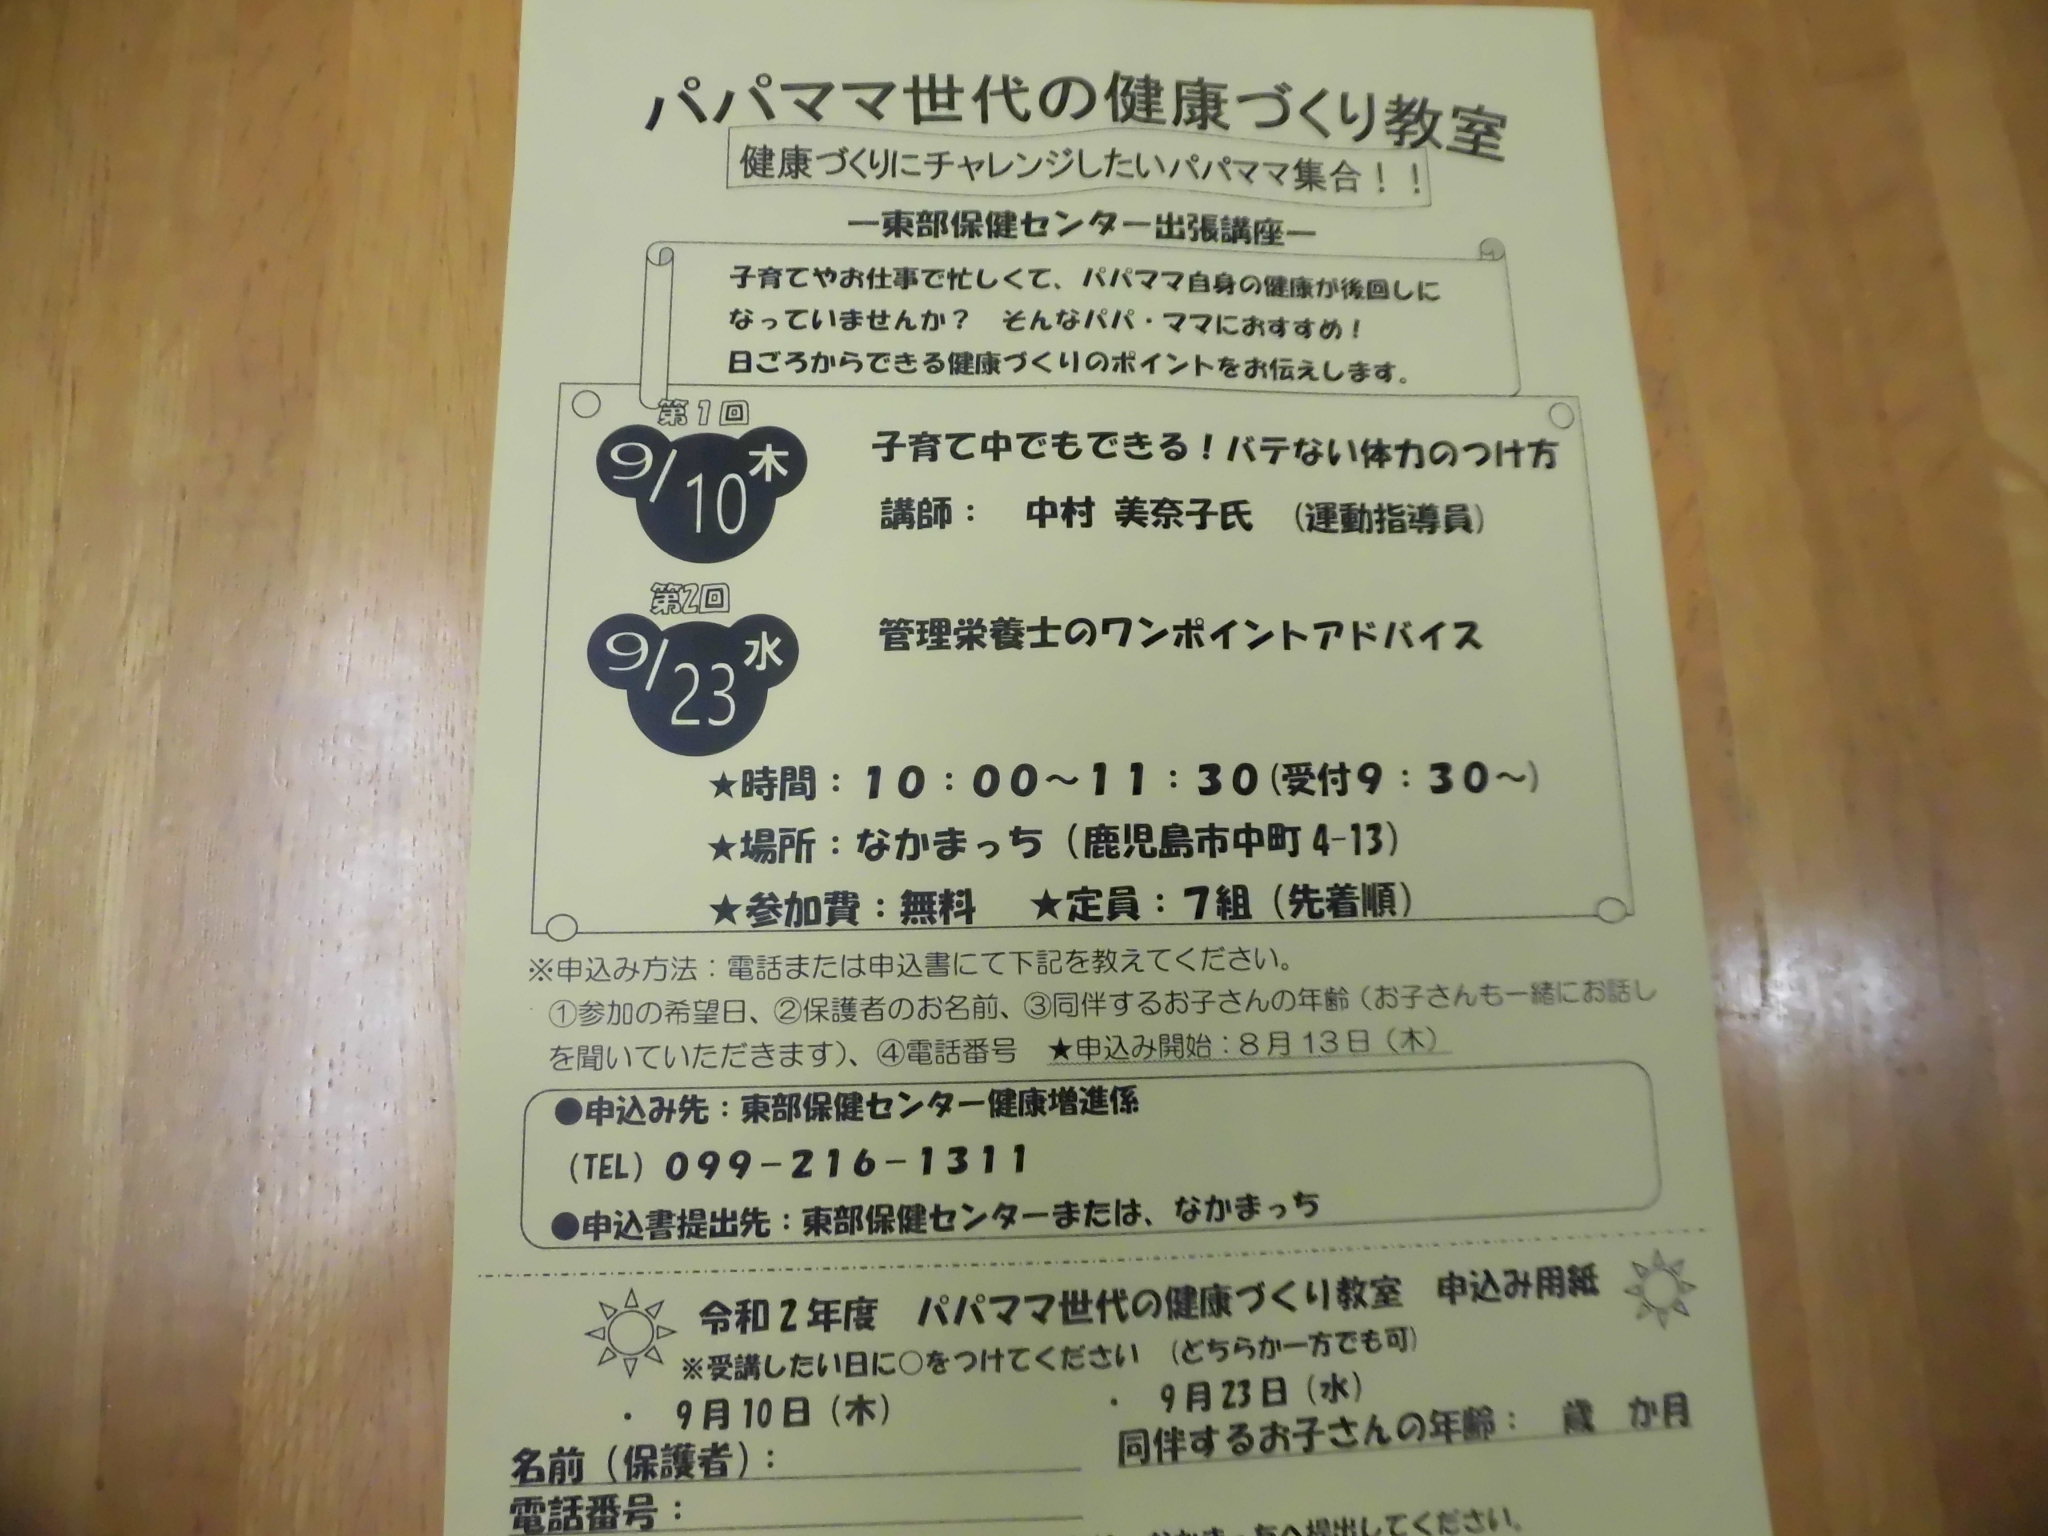 パパママ世代の健康づくり教室
健康づくりにチャレンジしたいパパママ集合！！
ー東部保健センター出張講座ー
子育てやお仕事で忙しくて、パパママ自身の健康が後回しに
なっていませんか？　そんなパパ・ママにおすすめ！
日ごろからできる健康づくりのポイントをお伝えします。
第1回
9/10木
子育て中でもできる！バテない体力のつけ方
講師：　中村 美奈子氏　(運動指導員)
第2回
9/23水
管理栄養士のワンポイントアドバイス
★時間：１０：００～１１：３０(受付９：３０～)
★場所：なかまっち（鹿児島市中町4-13）
★参加費：無料　★定員：７組（先着順）
※申込み方法：電話または申込書にて下記を教えてください。
①参加の希望日、②保護者のお名前、③同伴するお子さんの年齢（お子さんも一緒にお話し
を聞いていただきます）、④電話番号　★申込み開始：８月１３日（木）
●申込み先：東部保健センター健康増進係
（TEL）０９９－２１６－１３１１
●申込書提出先：東部保健センターまたは、なかまっち
令和２年度　パパママ世代の健康づくり教室　申込み用紙
※受講したい日に○をつけてください　(どちらか一方でも可)
・　9月10日（木）　・　9月23日（水）
名前（保護者）：　同伴するお子さんの年齢：　歳　か月
電話番号：
へ提出してください。